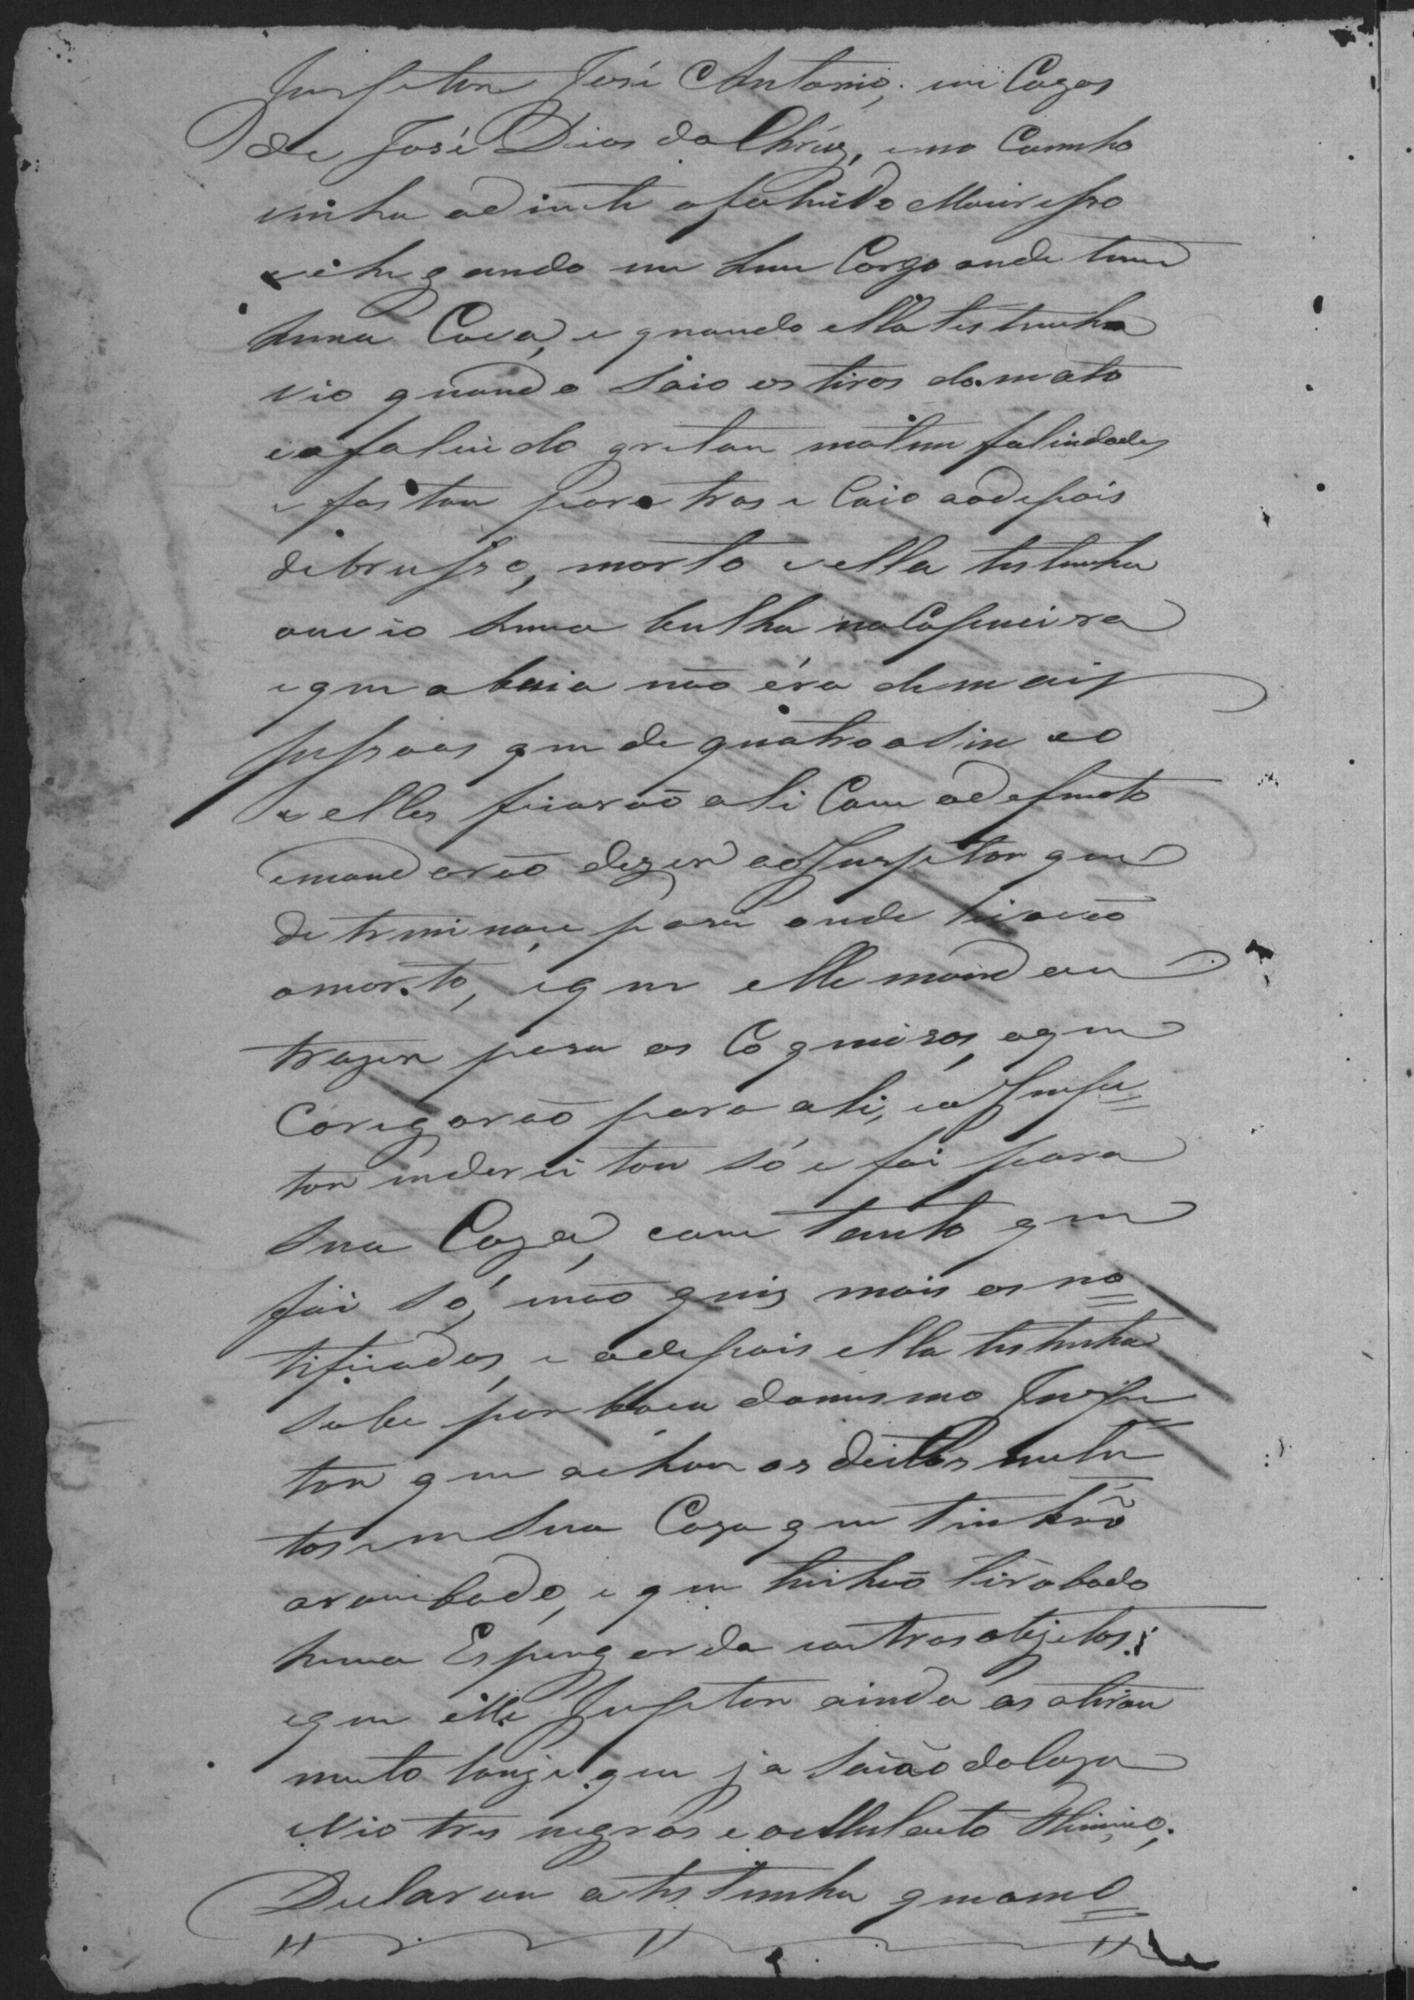 Inspetor José Antonio, em Cazas
de José Dias da Chrúz, e no Caminho
vinha adiante o falecido Mauricio
e chegando em hum Corgo onde tem
huma Cova, e quando ella testemunha
vio quando saio os tiros do mato
e o falecido gritou
e foi para tras e Caio aodepois
de brusso, morto e ella testemunha
ouvio huma bulha na Capueira
e que a bera não éra de mais
pessoas que de quatro a sinco
e elles ficarão ali Com o defunto
e mandarão dizer ao Inspetor que
determinace para onde tirarão
o morto, e que elle mandou
trazer para os Coqueiros, a que
Caregarão para ali, e o Inspe=
tor endereitou só e foi para
sua Caza, com tanto que
foi só, e não quiz mais os no=
tificados, e aodepois ella testemunha
sube por boca do mesmo Inspe
tor que achou os deitos mula=
tos em sua Caza que tinhão
arombado, e que tinhão
huma Espingarda e outros objetos;
e que elle Inspetor ainda os
muto longe que ja saião da Caza
e vio tres negros e o Mulato
Declarou a testemunha que o mo=